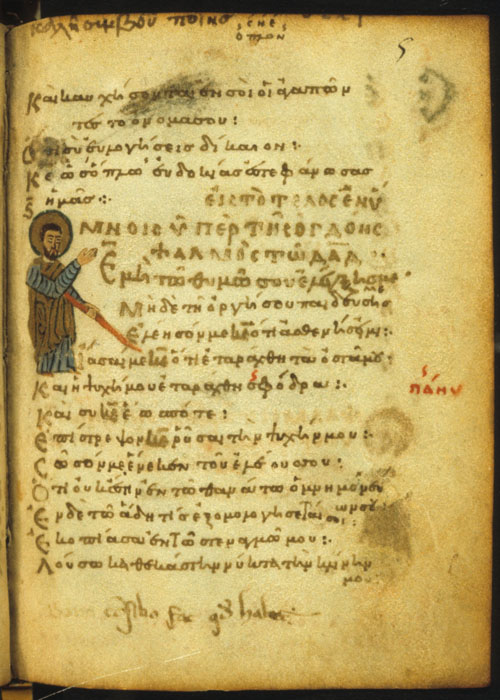 Καὶ καυχήσονται ἐν σοὶ οἱ ἀγαπῶν
τες τὸ ὄνομά σου:
Ὅτι σὺ εὐλογήσεις δίκαιον:
Κε ὡς ὅπλω εὐδοκίας ἐστεφάνωσας
ἡμᾶς:
εἰς τὸ τέλος ἐν ὕ
μνοις ὑπὲρ τῆς ὀγδόης
ψαλμὸς τῶ δαδ
Κε μὴ τῶ θυμῶ σου ἐλέγξης με
Μηδὲ τῆ ὀργῆ σου παιδεύσης
με
Ἐλέησόν με κε ὅτι ἀσθενής εἰμι:
Ἴασαί με κε ὅτι ἐταράχθη τὰ ὀστᾶ μου
Καὶ ἡ ψυχή μου ἐταράχθη σφόδρα:
πάνυ
Καὶ σὺ κε ἕως πότε:
Ἐπίστρεψον κε ῥῦσαι τὴν ψυχήν μου:
Σῶσόν με ἕνεκεν τοῦ ἐλέους σου:
Ὅτι οὐκ ἔστιν ἐν τῶ θανάτω ὁ μνημονεύ
ων σου:
Ἐν δὲ τῶ ἅδη τίς ἐξομολογήσεταί
σοι:
Ἐκοπίασα ἐν τῶ στεναγμῶ μου:
Λούσω καθεκάστην νύκτα τὴν κλίνην
μου: